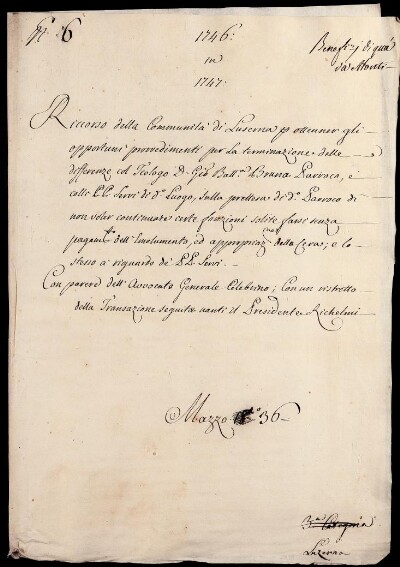 N.º 6
1746:
in
1747:
Benefizj di quà
da Monti
Ricorso della Communità di Luserna p ottenner gli
opportuni provvedimenti per la terminazione delle
differenze col Teologo D. Gio Batt.ª Bruna Parroco, e
colli P.P. Servi di d.º Luogo, sulla prettesa di d.º Parroco di
non voler continuare certe fonzioni solite farsi senza
pagam.to dell'Emolumento, ed appropriaz.ne della Cera; e lo
stesso a riguardo de' P.P. Servi.
Con parere dell'Avvocato Generale Celebrino; Con un ristretto
della Transazione seguita nanti il Presidente Richelmi
Mazzo º 36
3.ª Categoria
Luzerna